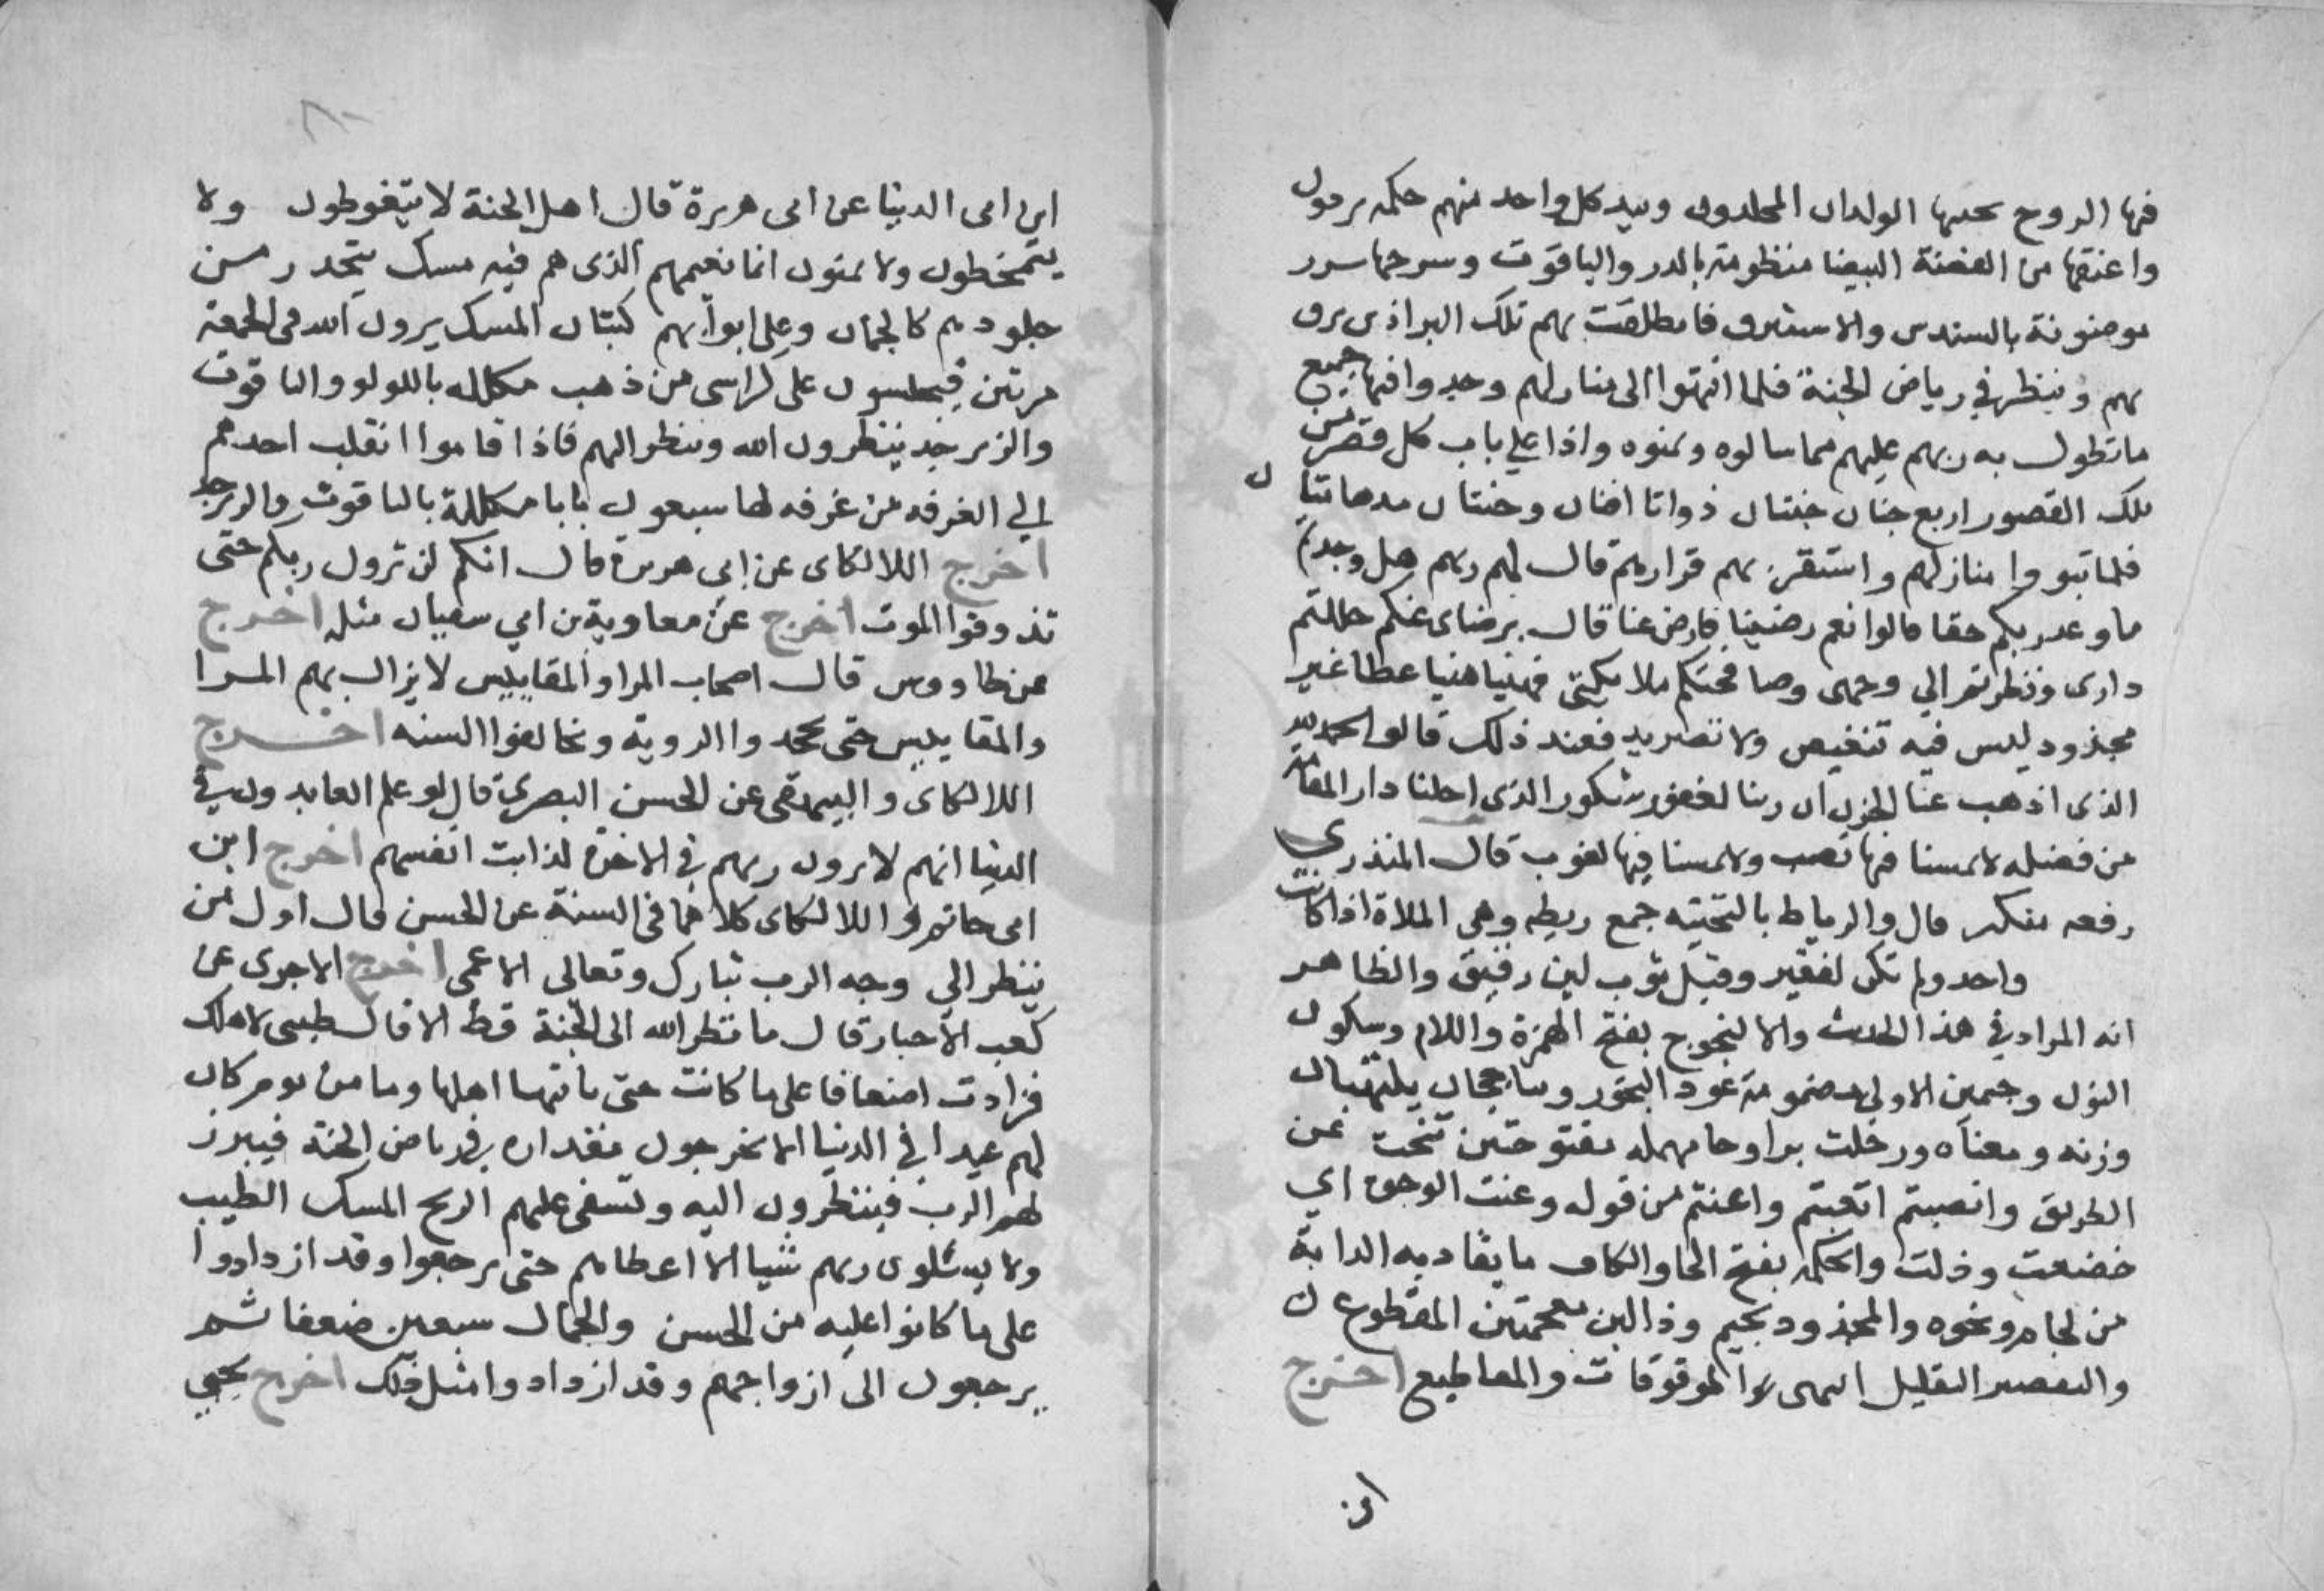 فيها الروح بجنبها الولدان المخلدون وبيد كل واحد منهم حكمه برذون
واعنقها من الفضة البيضا منظومة بالدر والياقوت وسرجها سرر
موضونة بالسندس والاستبرق فانطلقت بهم تلك البراذين تزف
بهم وتنظر في رياض الجنة فلما انتهوا الى منازلهم وجدوا فيها جميع
ما تطول به ربهم عليهم مما سالوه وتمنوه واذا على باب كل قصر من
تلك القصور اربع جنان جنتان ذواتا افنان وجنتان مدهامتان
فلما تبووا منازلهم واستقر بهم قرارهم قال لهم ربهم هل وجدتم
ما وعد ربكم حقا قالوا نعم رضينا فارض عنا قال برضاى عنكم حللتم
دارى ونظرتم الي وجهى وصافحتكم ملايكتى فهنيا هنيا عطا غير
مجذوذ ليس فيه تنغيص ولا تصريد فعند ذلك قالوا الحمد لله
الذى اذهب عنا الحزن ان ربنا لغفور شكور الذى احلنا دار المقامة
من فضله لا يمسنا فيها نصب ولا يمسنا فيها لغوب قال المنذرى
رفعه منكر قال والرياط بالتحتيه جمع ريطه وهى الملاة اذا كانت
واحد ولم تكن لفقير وقيل ثوب لين رقيق والظاهر
انه المراد في هذا الحديث والالنجوج بفتح الهمزة واللام وسكون
النون وجيمين الاولى مضمومة عود البخور وتاججان يلتهبان
وزنه ومعناه وزحلت بزا وحا مهمله مفتوحتين تنحت عن
الطريق وانصبتم اتعبتم واعنتم من قوله وعنت الوجوه اي
خضعت وذلت والحكمه بفتح الحا والكاف ما يقاد به الدابة
من لجام ونحوه والمجذوذ بجيم وذالين معجمتين المقطوع
والتصريد التقليل انتهى الموقوفات والمقاطيع اخرج
ابن
ابن ابى الدنيا عن ابى هريرة قال اهل الجنة لا يتغوطون ولا
يتمخطون ولا يمنون انما نعيمهم الذى هم فيه مسك يتحدر من
جلودهم كالجمان وعلى ابوابهم كثبان المسك يرون الله فى الجمعة
مرتين فيجلسون على كراسى من ذهب مكلله باللولو والياقوت
والزبرجد ينظرون الله وينظر اليهم فاذا قاموا انقلب احدهم
الي الغرفه من غرفه لها سبعون بابا مكللة بالياقوت والزبرجد
اخرج اللالكاى عن ابي هريرة قال انكم لن ترون ربكم حتى
تذوقوا الموت اخرج عن معاوية بن ابي سفيان مثله اخرج
عن طاووس قال اصحاب المرا والمقاييس لا يزال بهم المرا
والمقاييس حتى يجحدوا الروية ويخالفوا السنه اخرج
اللالكاى والبيهقى عن الحسن البصري قال لو علم العابدون في
الدنيا انهم لا يرون ربهم في الاخرة لذابت انفسهم اخرج ابن
ابى حاتم واللالكاى كلاهما فى السنة عن الحسن قال اول من
ينظر الي وجه الرب تبارك وتعالى الاعمى اخرج الاجرى عن
كعب الاحبار قال ما نظر الله الى الجنة قط الا قال طيبى لاهلك
فزادت اضعافا على ما كانت حتى ياتيها اهلها وما من يوم كان
لهم عيدا في الدنيا الا يخرجون مقداره في رياض الجنة فيبرز
لهم الرب فينظرون اليه وتسفى عليهم الريح المسك الطيب
ولا يسئلون ربهم شيا الا اعطاهم حتى يرجعوا وقد ازدادوا
على ما كانوا عليه من الحسن والجمال سبعين ضعفا ثم
يرجعون الى ازواجهم وقد ازدادوا مثل ذلك اخرج يحيى